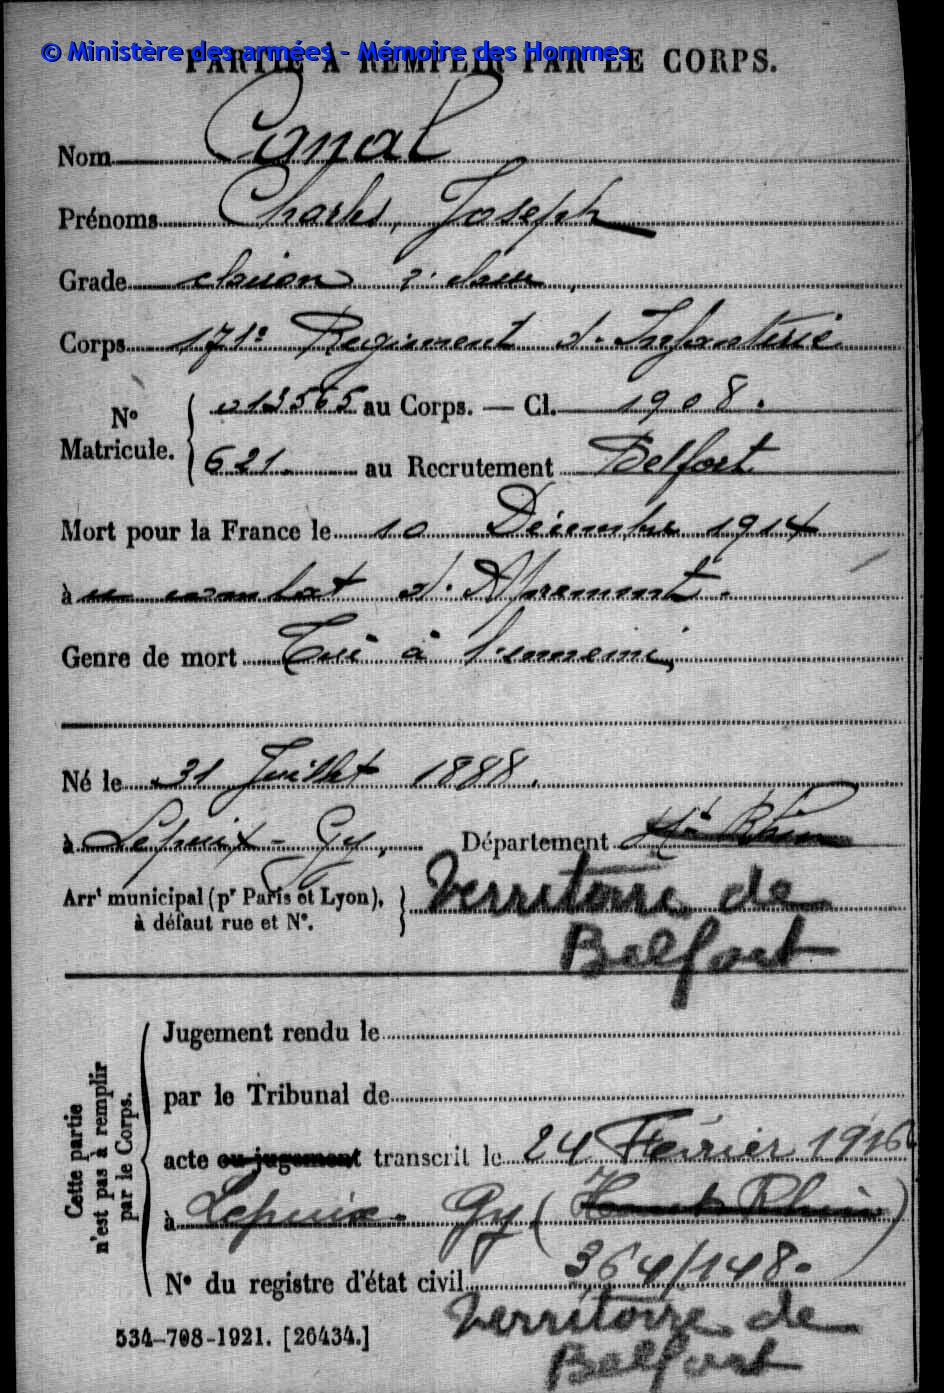 © Ministère des armées - Mémoire des Hommes
PARTIE À REMPLIR PAR LE CORPS.
Nom Canal
Prénoms Charles, Joseph
Grade clairon 2e classe
Corps 171e Régiment d'Infanterie
N° Matricule. { 013565 au Corps. — Cl. 1908.
621. au Recrutement Belfort
Mort pour la France le 10 Décembre 1914
à au combat d'Apremont.
Genre de mort Tué à l'ennemi,
Né le 31 Juillet 1888.
à Lepuix-Gy, Département Ht Rhin
Arrt municipal (pr Paris et Lyon), à défaut rue et N°. } Territoire de
Belfort
Cette partie n'est pas à remplir par le Corps.
Jugement rendu le
par le Tribunal de
acte ou jugement transcrit le 24 Février 1916
à Lepuix-Gy (Haut Rhin)
N° du registre d'état civil 364/148.
534-708-1921. [26434.] Territoire de
Belfort